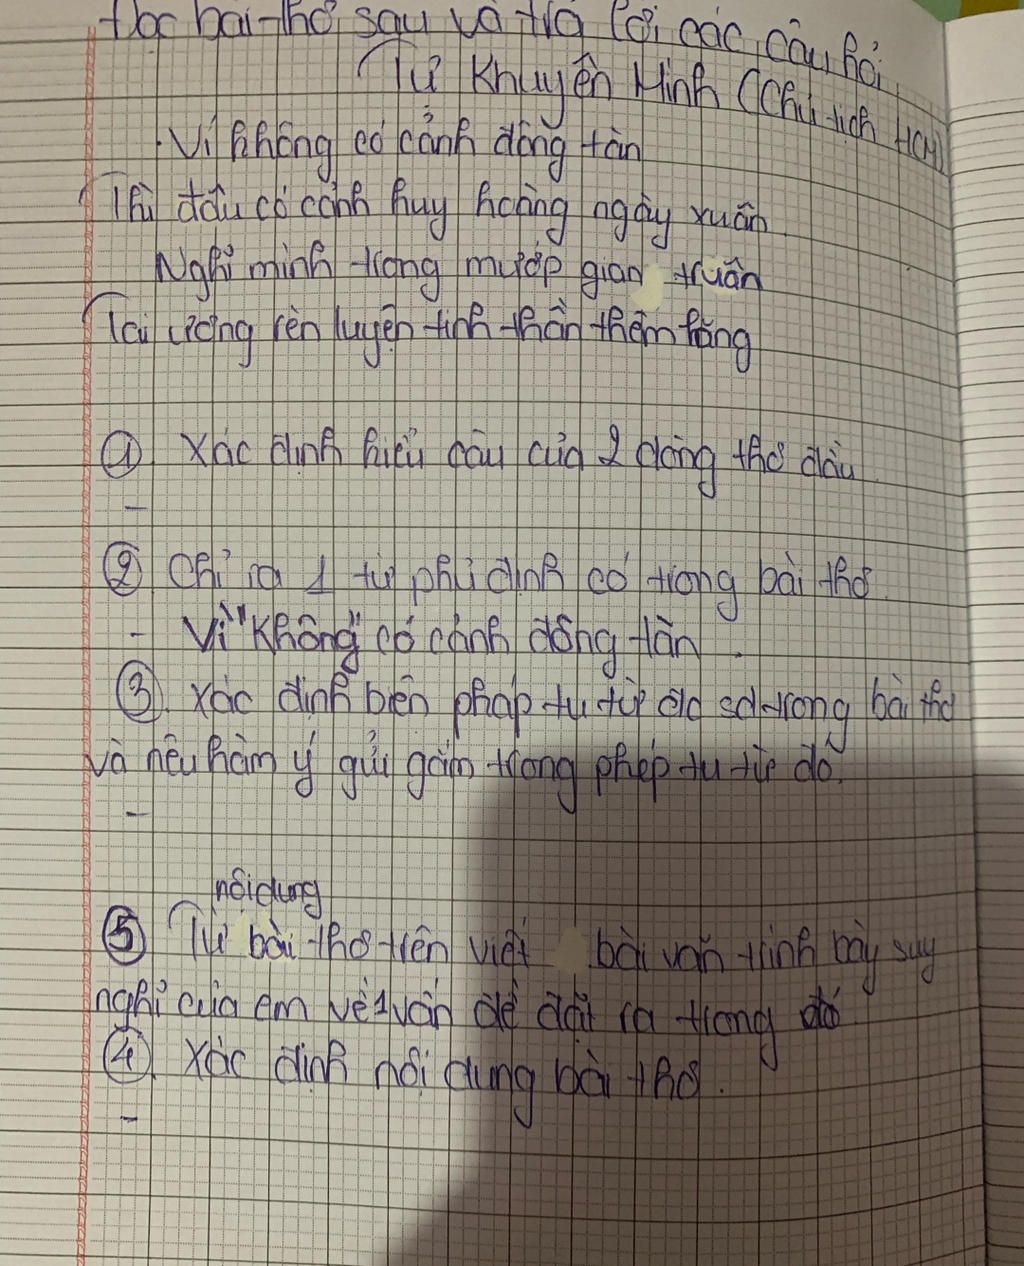 Đọc bài thơ sau và trả lời các câu hỏi
Tự Khuyên Mình (Chủ tịch HCM)
Ví không có cảnh đông tàn
Thì đâu có cảnh huy hoàng ngày xuân
Nghĩ mình trong mướp gian truân
Tai ương rèn luyện tinh thần thêm hăng
① Xác định kiểu câu của 2 dòng thơ đầu
-
② Chỉ ra 1 từ phủ định có trong bài thơ.
- Vì "Không" có cảnh đông tàn.
③. Xác định biện pháp tu từ đặc sd trong bài thơ
và nêu hàm ý gửi gắm trong phép tu từ đó.
-
nội dung
⑤ Từ bài thơ trên viết bài văn trình bày suy
nghĩ của em về 1 vấn đề đặt ra trong đó
④. Xác định nội dung bài thơ.
-